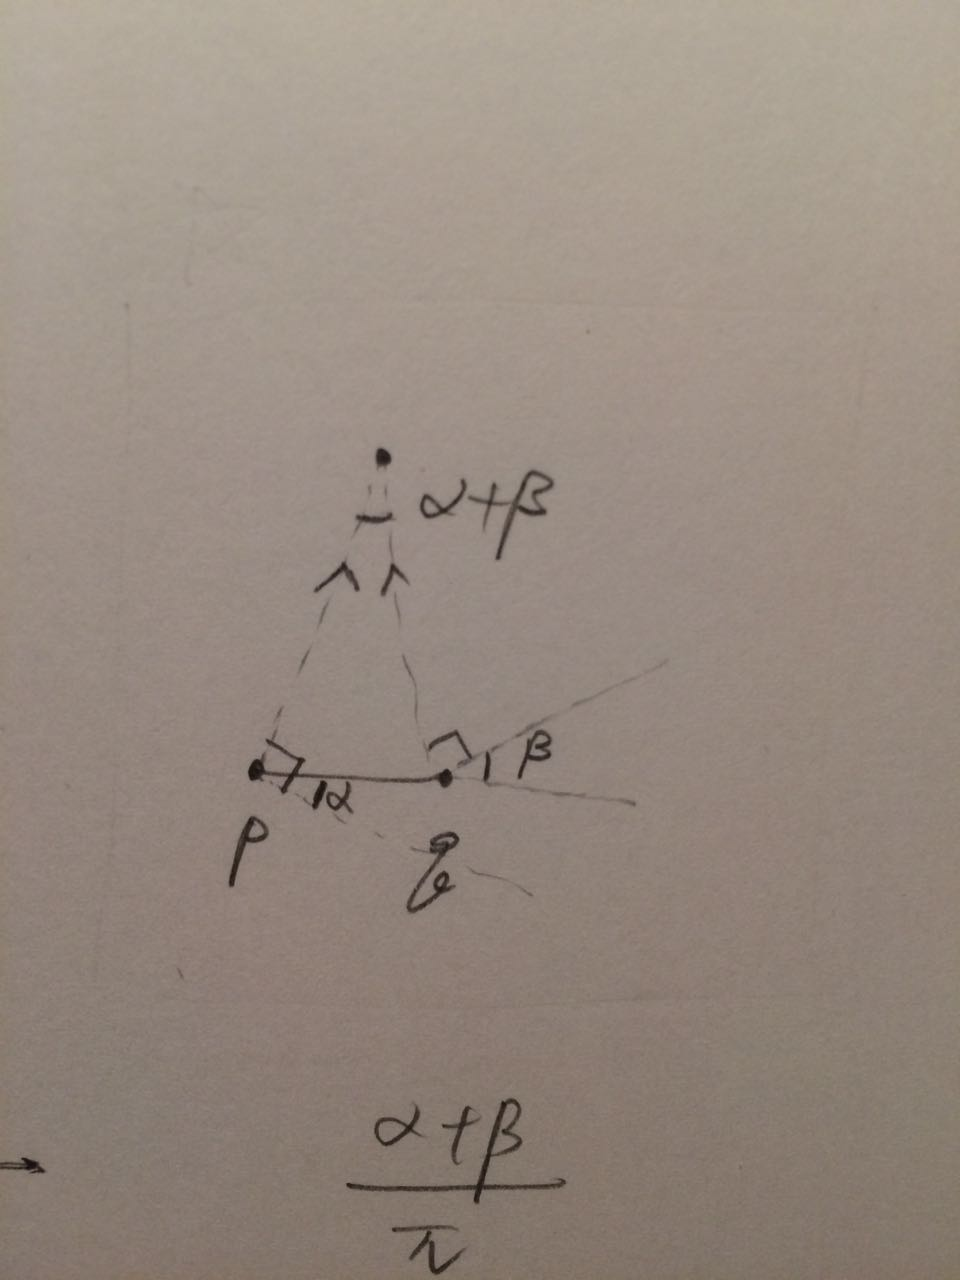 α+β
β
α
p
q
α+β
π